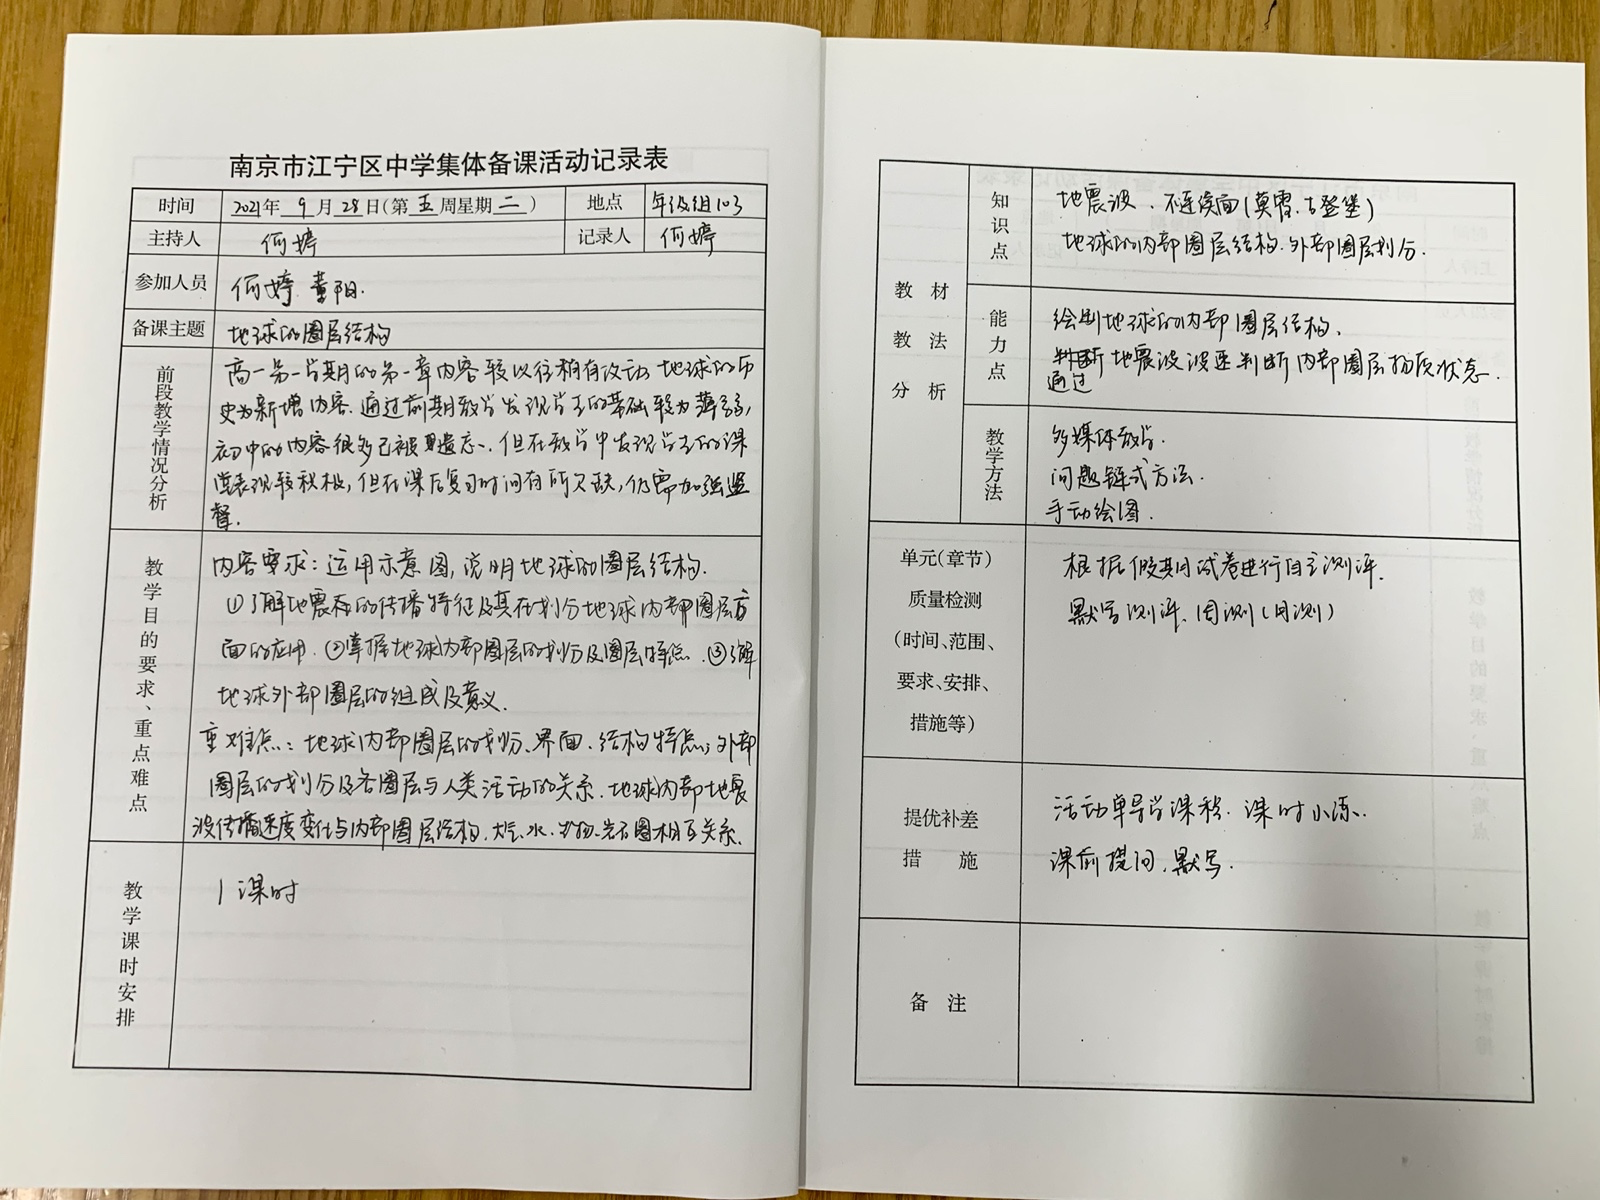 南京市江宁区中学集体备课活动记录表
时间 2021年 9 月 28 日(第 五 周星期 二 ) 地点 年级组103
主持人 何婷 记录人 何婷
参加人员 何婷 董阳.
备课主题 地球的圈层结构
前段教学情况分析
高一第一学期的第一章内容较以往稍有改动 地球的历
史为新增内容. 通过前期教学发现学生的基础较为薄弱,
初中的内容很多已被遗忘、但在教学中发现学生的课
堂表现较积极, 但在课后复习时间有所欠缺, 仍需加强监
督.
教学目的要求、重点难点
内容要求: 运用示意图, 说明地球的圈层结构.
①了解地震波的传播特征及其在划分地球内部圈层方
面的应用. ②掌握地球内部圈层的划分及圈层特点. ③了解
地球外部圈层的组成及意义.
重难点: 地球内部圈层的划分、界面、结构特点; 外部
圈层的划分及各圈层与人类活动的关系. 地球内部地震
波传播速度变化与内部圈层结构. 大气、水、生物、岩石圈相互关系.
教学课时安排
1课时
教材教法分析
知识点
地震波、不连续面(莫霍、古登堡)
地球的内部圈层结构. 外部圈层划分.
能力点
绘制地球的内部圈层结构.
通过 地震波波速判断内部圈层物质状态.
教学方法
多媒体教学.
问题链式方法.
手动绘图.
单元(章节)
质量检测
(时间、范围、
要求、安排、
措施等)
根据假期试卷进行自主测评.
默写测评、周测(月测)
提优补差
措 施
活动单导学课程. 课时小练.
课前提问、默写.
备 注